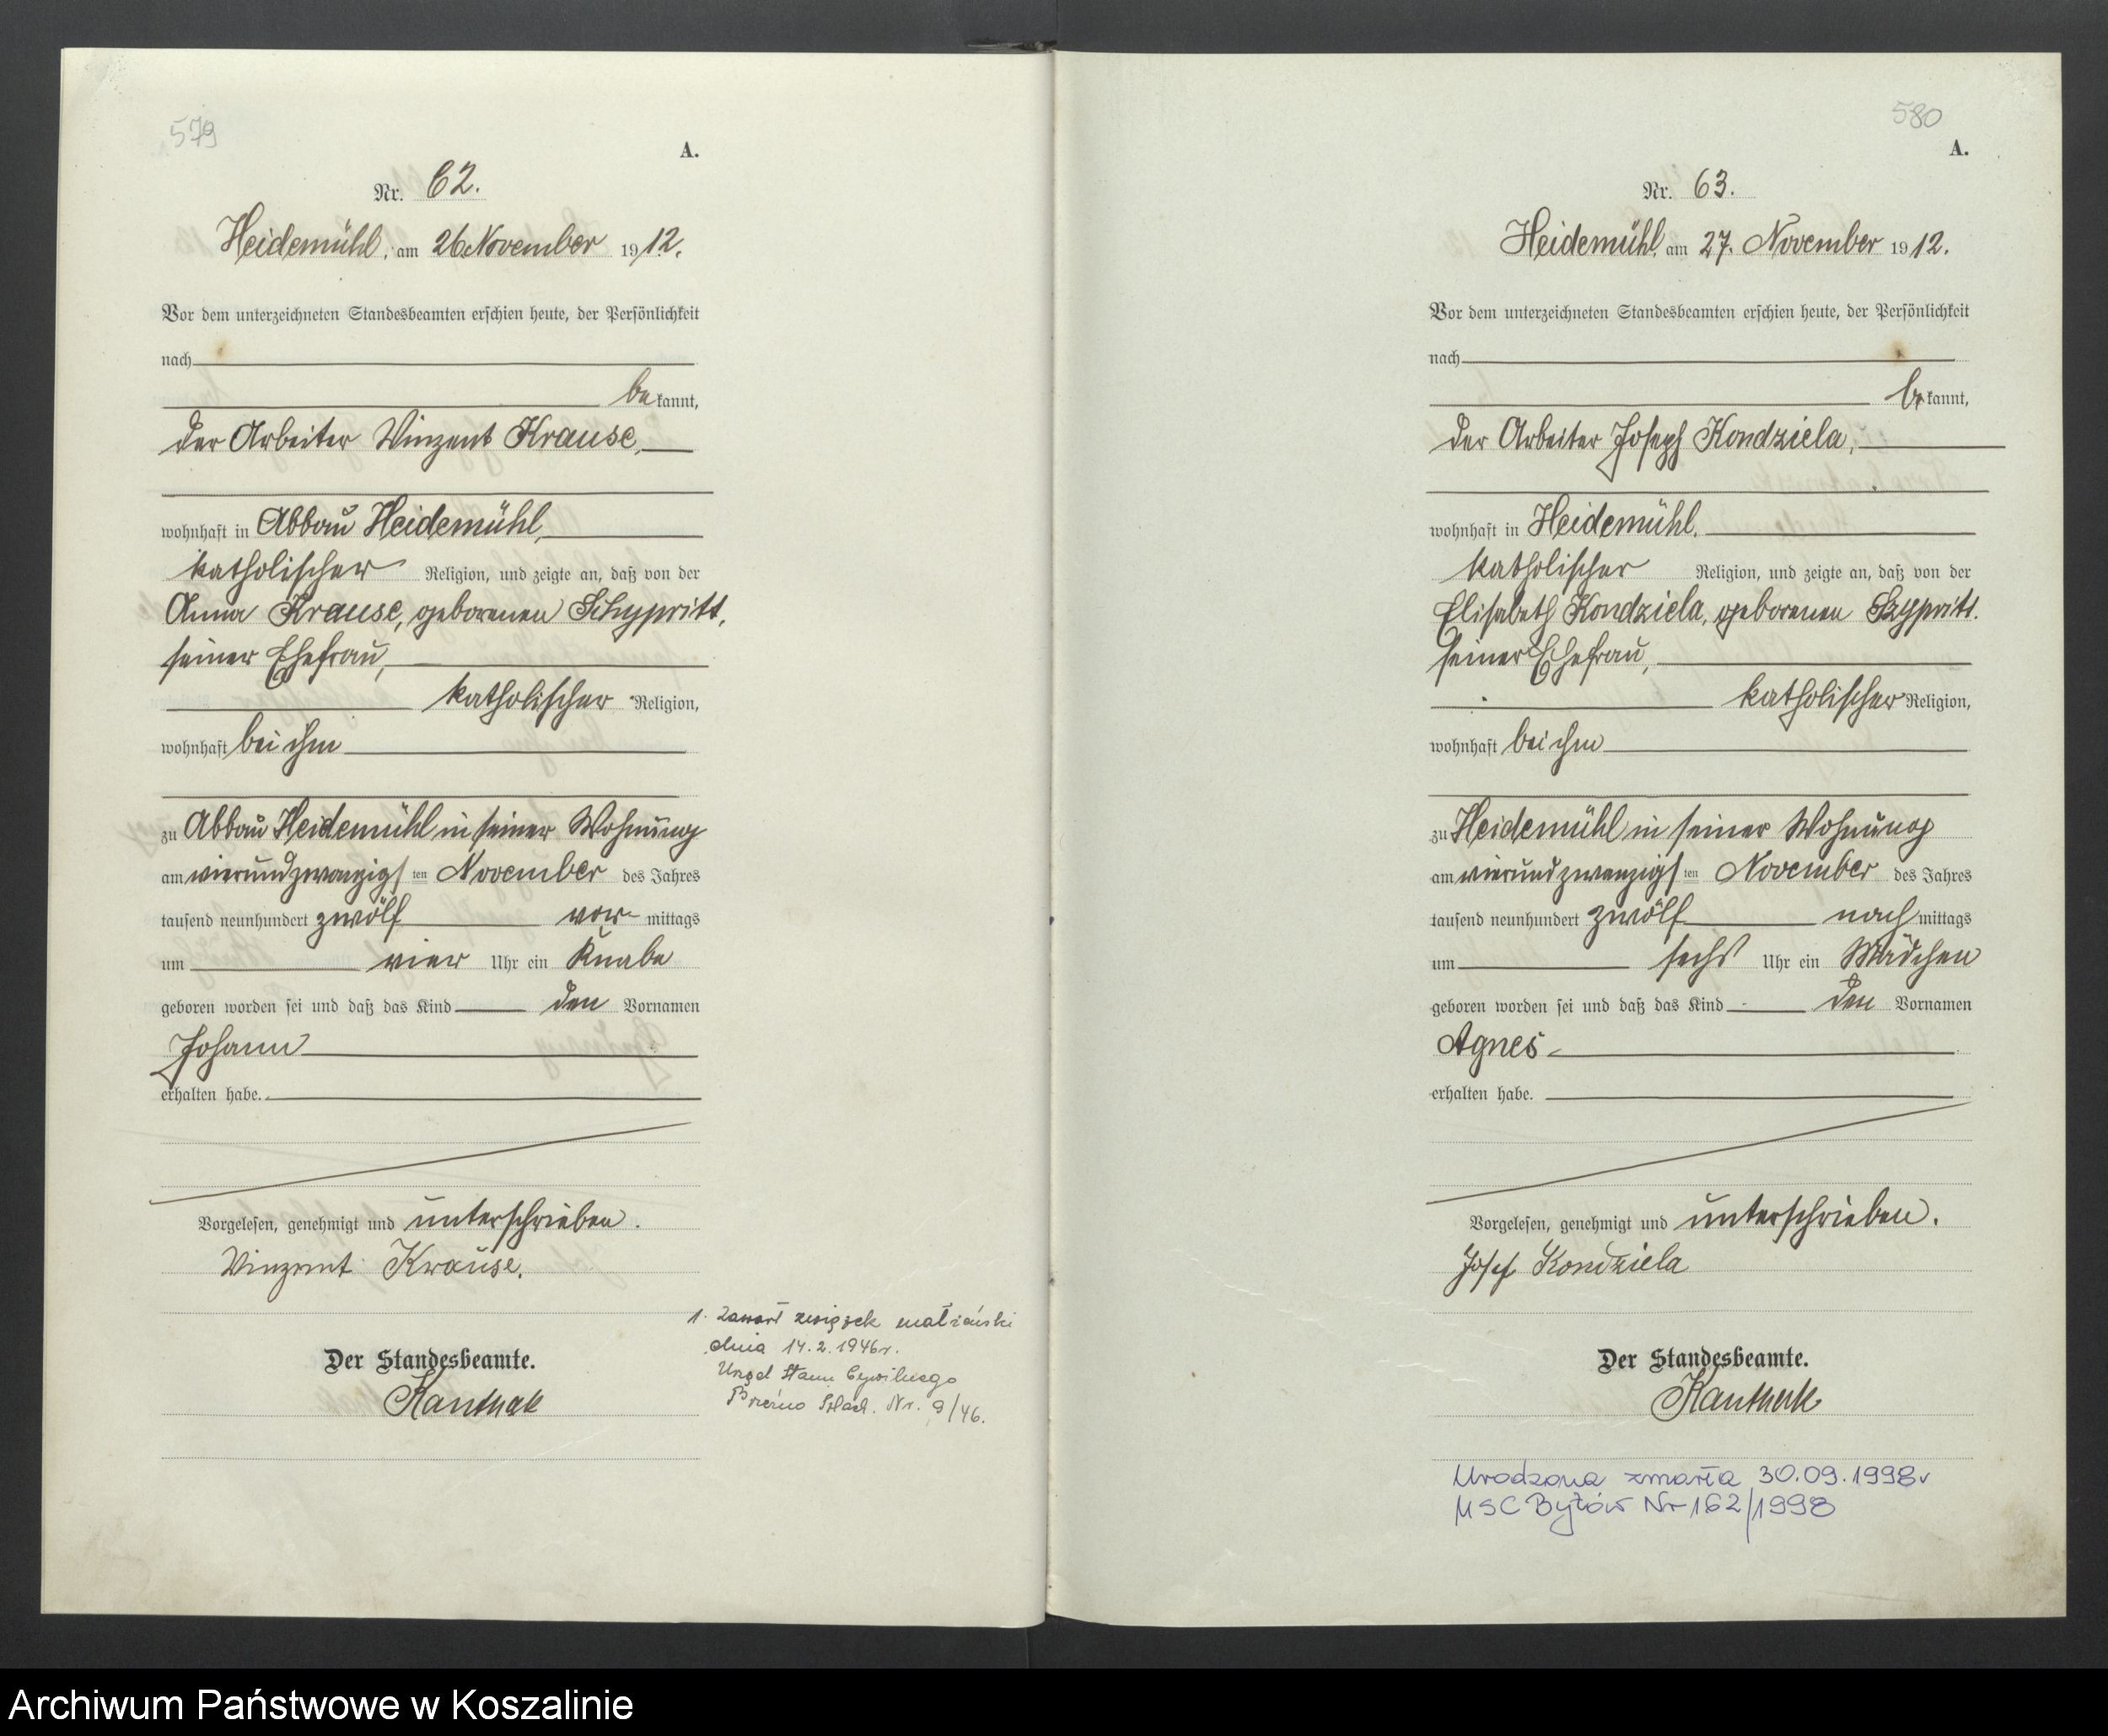 579
A.
Nr. 62.
Heidemühl, am 26. November 1912.
Vor dem unterzeichneten Standesbeamten erschien heute, der Persönlichkeit
nach
be kannt,
der Arbeiter Vinzent Krause,
wohnhaft in Abbau Heidemühl,
katholischer Religion, und zeigte an, daß von der
Anna Krause, geborenen Schypritt,
seiner Ehefrau,
katholischer Religion,
wohnhaft bei ihm
zu Abbau Heidemühl in seiner Wohnung
am vierundzwanzigsten November des Jahres
tausend neunhundert zwölf vor mittags
um vier Uhr ein Knabe
geboren worden sei und daß das Kind den Vornamen
Johann
erhalten habe.
Vorgelesen, genehmigt und unterschrieben.
Vinzent Krause.
1. Zawarł związek małżeński
dnia 14.2.1946 r.
Urząd Stanu Cywilnego
Brzeźno Szlach. Nr. 9/46.
Der Standesbeamte.
Kanthak
580
A.
Nr. 63.
Heidemühl, am 27. November 1912.
Vor dem unterzeichneten Standesbeamten erschien heute, der Persönlichkeit
nach
be kannt,
der Arbeiter Joseph Kondziela,
wohnhaft in Heidemühl,
katholischer Religion, und zeigte an, daß von der
Elisabeth Kondziela, geborenen Szypritt.
seiner Ehefrau,
katholischer Religion,
wohnhaft bei ihm
zu Heidemühl in seiner Wohnung
am vierundzwanzigsten November des Jahres
tausend neunhundert zwölf nach mittags
um sechs Uhr ein Mädchen
geboren worden sei und daß das Kind den Vornamen
Agnes
erhalten habe.
Vorgelesen, genehmigt und unterschrieben.
Josef Kondziela
Der Standesbeamte.
Kanthak
Urodzona zmarła 30.09.1998 r
USC Bytów Nr 162/1998
Archiwum Państwowe w Koszalinie